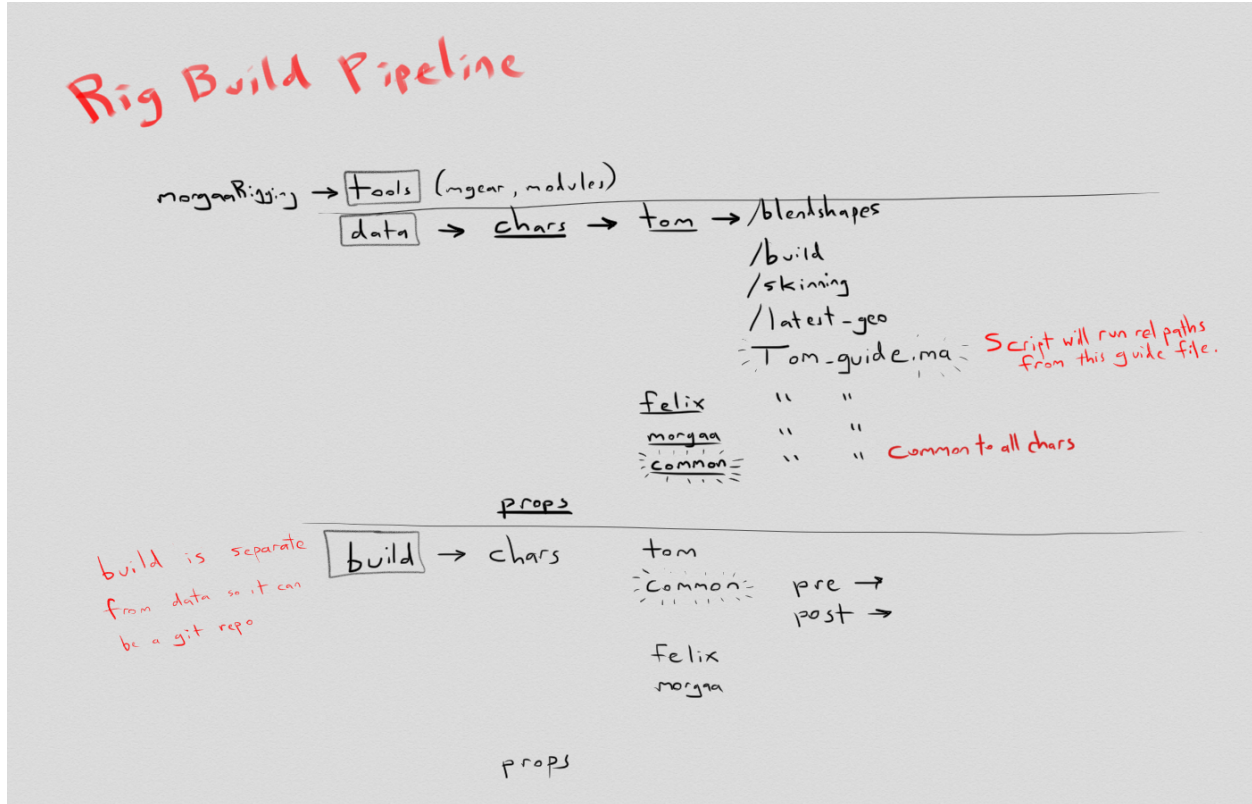 Rig Build Pipeline
morgaaRigging → tools (mgear, modules)
data → chars → tom → /blendshapes
/build
/skinning
/latest-geo
Tom-guide.ma
Script will run rel paths
from this guide file.
felix " "
morgaa " "
common " " Common to all chars
props
build is separate
from data so it can
be a git repo
build → chars tom
Common pre →
post →
felix
morgaa
props